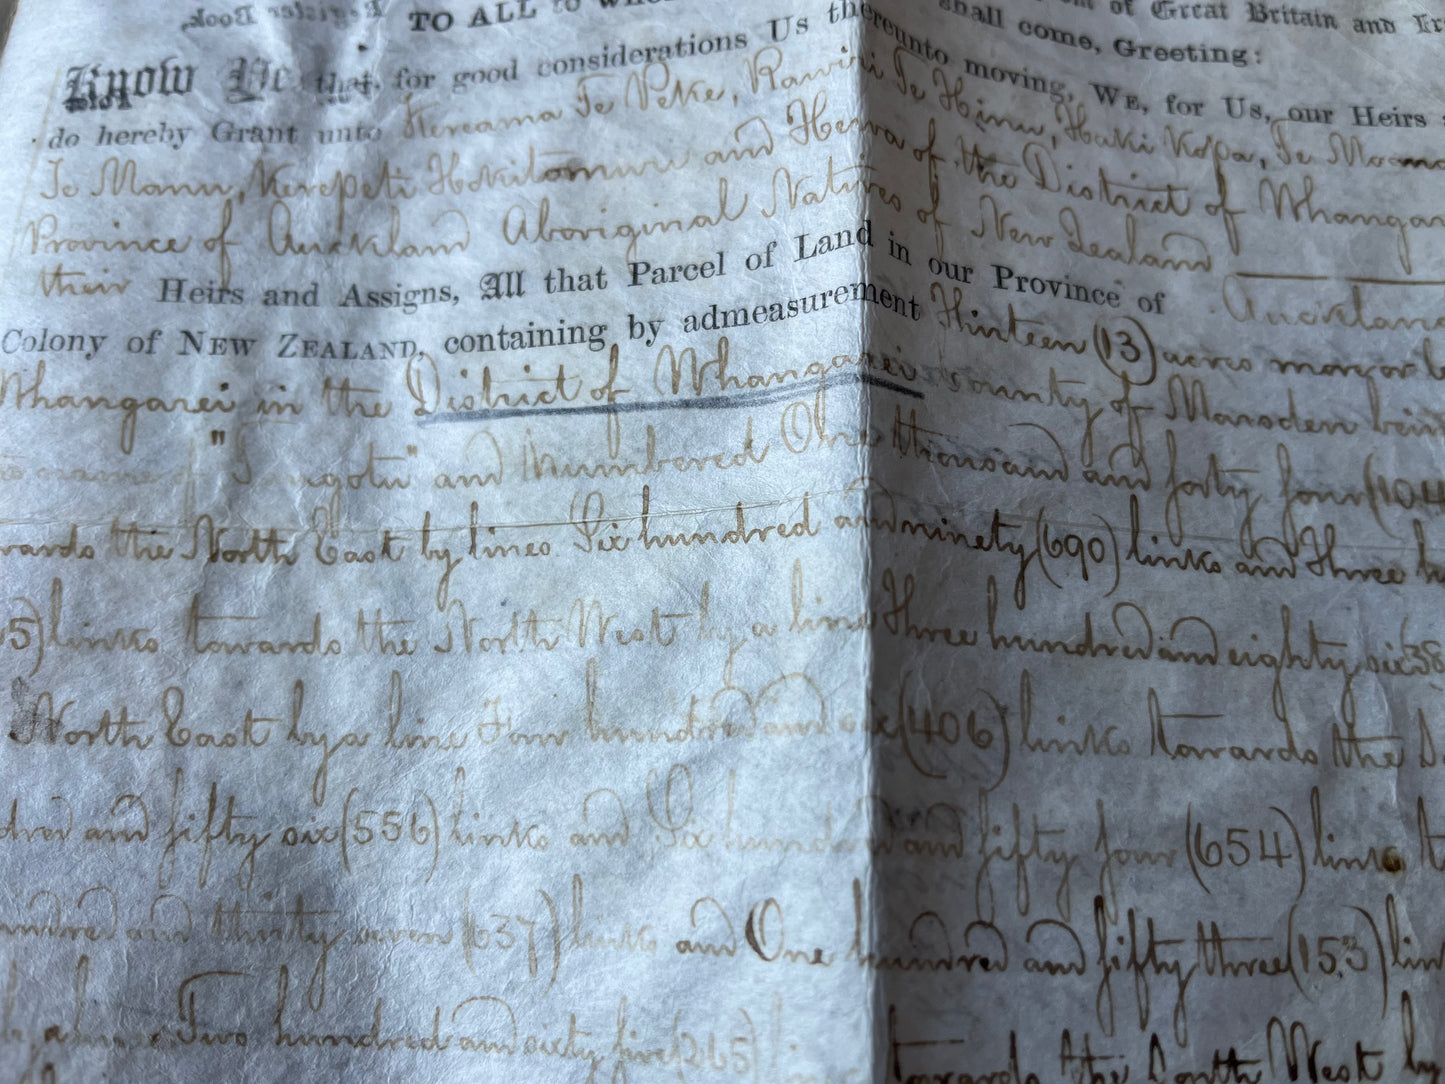 Register Book,
TO ALL to of Great Britain and
shall come, Greeting:
Know Ye that, for good considerations Us thereunto moving, WE, for Us, our Heirs
do hereby Grant unto Hereama Te Peke, Rawiri Te Hinu, Haki Kopa, Te
Te Manu, Kerepeti Hokitomuri and Hewa of the District of
Province of Auckland Aboriginal Natives of New Zealand
their Heirs and Assigns, All that Parcel of Land in our Province of Auckland
Colony of NEW ZEALAND, containing by admeasurement Thirteen (13) acres more or
Whangarei in the District of Whangarei County of Marsden
name of " " and numbered One thousand and forty four (104
the North East by lines Six hundred and ninety (690) links and Three
5) links towards the North West by a line Three hundred and eighty six
North East by a line Four hundred and six (406) links towards the
and fifty six (556) links and Six hundred and fifty four (654) links
and thirty seven (637) links and One hundred and fifty three (153)
Two hundred and sixty five (265) towards the South West by